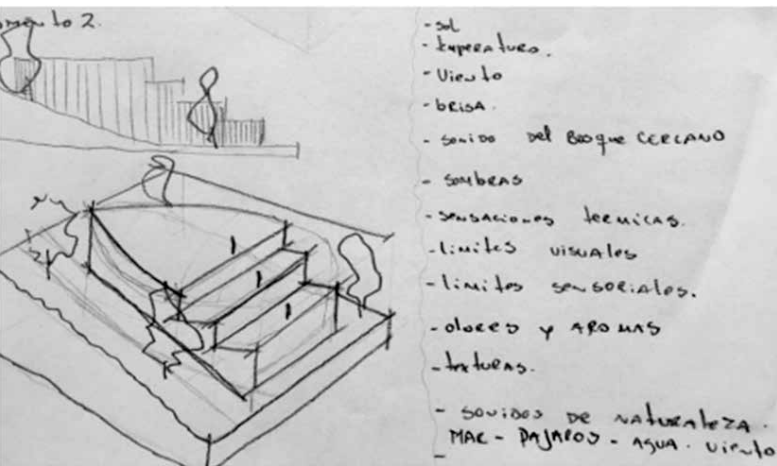 omento 2.
- sol
- temperatura.
- Viento
- brisa.
- sonido del Bosque CERCANO
- sombras
- sensaciones termicas.
- limites visuales
- limites sensoriales.
- olores y AROMAS
- texturas.
- sonidos DE NATURALEZA.
MAR - PAJAROS - AGUA. viento
-